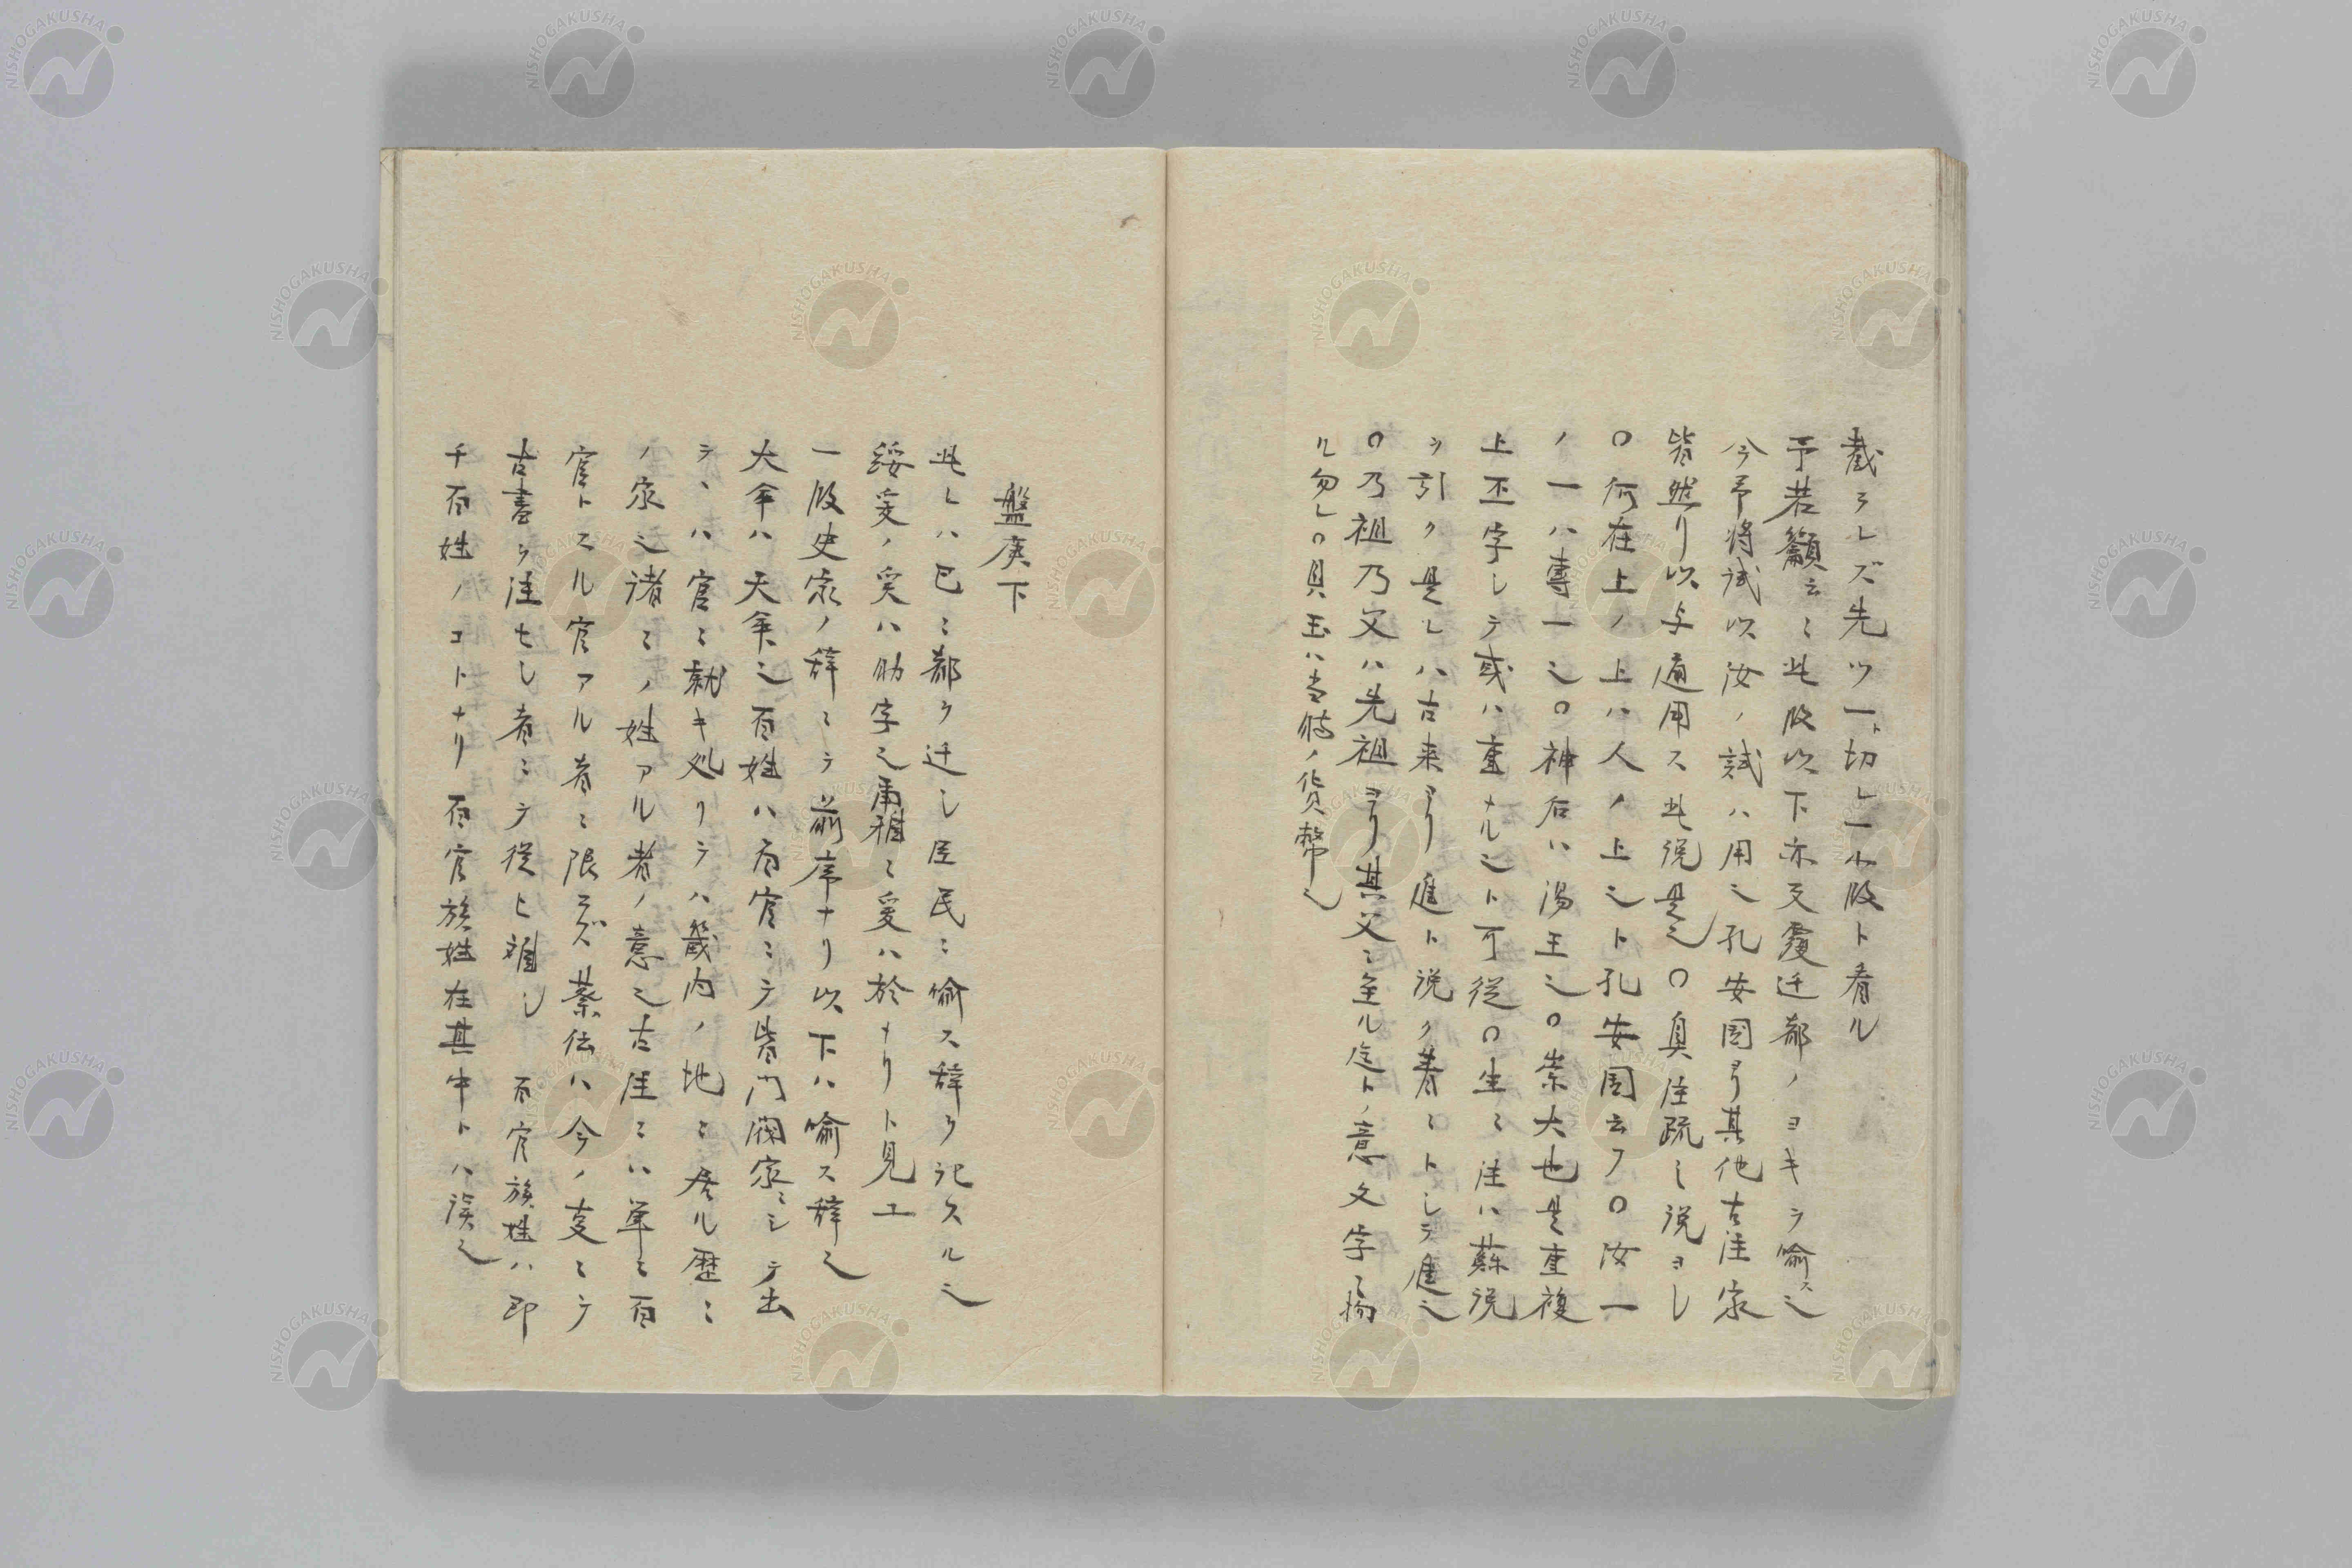 截ラレズ先ツ一ト切レ一小段ト看ル
予若籲云ニ此段以下亦反覆迁都ノヨキヲ喻ス也
今予将試以汝ノ試ハ用也孔安国ヨリ其他古注家
皆然リ以与通用ス此説是也〇真注疏ノ説ヨシ
〇何在上ノ上ハ人ノ上也ト孔安国云フ〇汝一
ノ一ハ専一也〇神后ハ湯王也〇崇大也是重複
上丕字シテ或ハ重ナル也ト可従〇生ニ注ハ蘇説
ヲ引ク是レハ古来ヨリ進ト説ク善ニトシテ進也
〇乃祖乃父ハ先祖ヨリ其父ニ至ル迄ト意文字ニ拘
ル勿レ〇具玉ハ当時ノ貨幣也
盤庚下
此レハ已ニ都ヲ迁シ臣民ニ喻ス辞ヲ記スル也
綏爰ノ爰ハ助字也爾雅ニ爰ハ於ナリト見エ
一段史家ノ辞ニテ前席ナリ以下ハ喻ス辞也
大命ハ天命也百姓ハ百官ニテ皆門閥家ニシテ出
テヽハ官ニ就キ処リテハ畿内ノ地ニ居ル歴ニ
ノ家也諸ニノ姓アル者ノ意也古注ニハ単ニ百
官トスル官アル者ニ限ラズ蔡伝ハ今ノ支ニテ
古書ヲ注セシ者ニテ従ヒ難シ 百官族姓ハ即
千百姓ノコトナリ百官族姓在其中トハ誤也